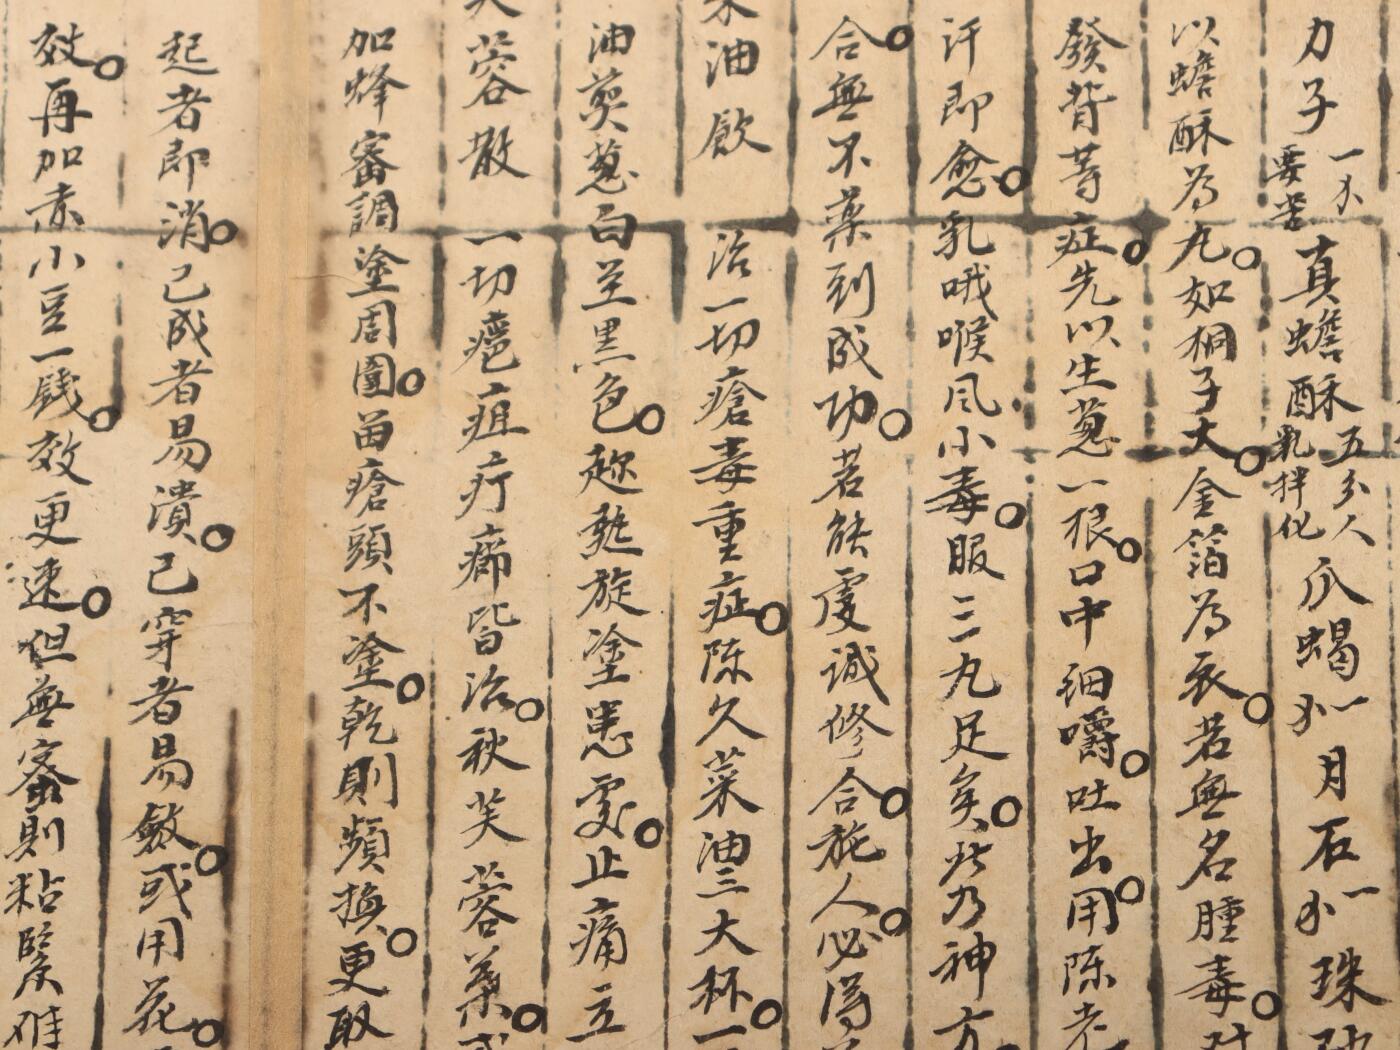 力子一小要苦真蟾酥五分人乳拌化爪蝎一小月石一小珠
以蟾酥為丸如桐子大金箔為衣若無名腫毒
發背等症先以生蔥一根口中細嚼吐出用陈老
汗即愈乳哦喉风小毒服三丸足矣此乃神方
合無不藥到成功若能虔誠修合施人必得
菜油飲 治一切瘡毒重症陈久菜油三大杯一
油煎葱白至黑色趂熱旋塗患處止痛立
芙蓉散 一切疮疽疔癤皆治秋芙蓉葉或
加蜂蜜調塗周圍留瘡頭不塗乾則頻換更取
起者即消已成者易潰已穿者易斂或用花
效再加赤小豆一錢效更速但無蜜則粘緊难